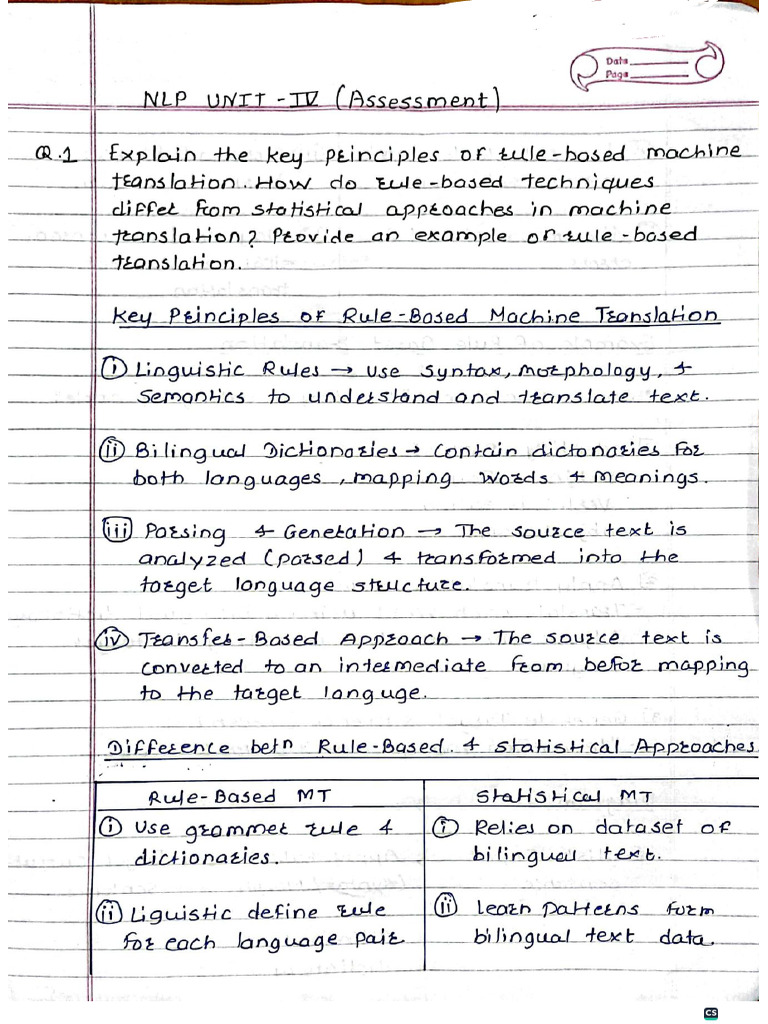 Date
Page
NLP UNIT-IV (Assessment)
Q.1 Explain the key principles of rule-based machine
translation. How do rule-based techniques
differ from statistical approaches in machine
translation? Provide an example of rule-based
translation.
Key Principles of Rule-Based Machine Translation
(i) Linguistic Rules → Use syntax, morphology, &
semantics to understand and translate text.
(ii) Bilingual Dictionaries → Contain dictonaries for
both languages, mapping words & meanings.
(iii) Parsing & Generation → The source text is
analyzed (parsed) & transformed into the
target language structure.
(iv) Transfer-Based Approach → The source text is
converted to an intermediate from befor mapping
to the target languge.
Difference betn Rule-Based & Statistical Approaches
Rule-Based MT Statistical MT
(i) Use grammer rule & (i) Relies on dataset of
dictionaries. bilingual text.
(ii) Liguistic define rule (ii) learn patterns form
for each language pair bilingual text data.
CS